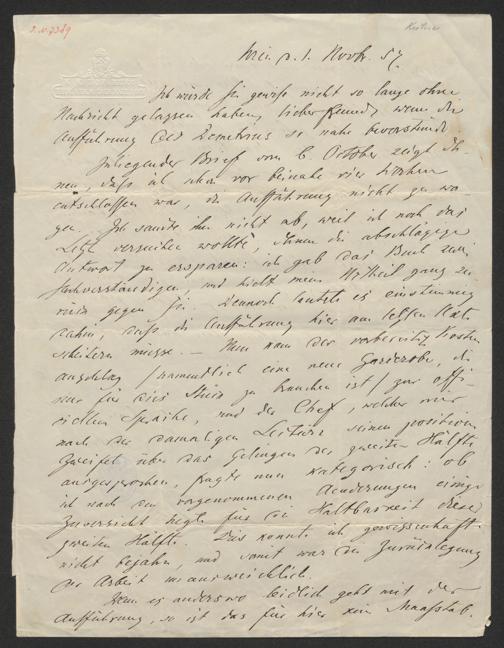 J.N. 7389
Wien d. 1. Novbr. 57.
Ich würde Sie gewiß nicht so lange ohne
Nachricht gelassen haben, lieber Freund, wenn die
Aufführung des Demetrius so nahe bevorstünde
Inliegender Brief vom 6. October zeigt Ih
nen, daß ich schon vor beinahe vier Wochen
entschlossen war, die Aufführung nicht zu wa
gen. Ich sandte ihn nicht ab, weil ich noch das
Letzte versuchen wollte, Ihnen die abschlägige
Antwort zu ersparen: ich gab das Buch zwei
Sachverständigen, und hielt mein Urtheil ganz zu
rück gegen Sie. Dennoch lautete es einstimmig
dahin, daß die Aufführung hier am letzten Akte
scheitern müsse. – Nun kam der vorbereitete Kosten
anschlag /namentlich eine neue Garderobe, die
nur für dies Stück zu brauchen ist/ zur offi
ciellen Sprache, und der Chef, welcher mir
nach der damaligen Lectüre seinen positiven
Zweifel über das Gelingen der zweiten Hälfte
ausgesprochen, fragte nun kategorisch: ob
ich nach den vorgenommenen Aenderungen einige
Zuversicht hegte für die Haltbarkeit dieser
zweiten Hälfte. Das konnte ich gewissenhaft
nicht bejahen, und somit war die Zurücklegung
der Arbeit unausweichlich.
Wenn es anderswo leidlich geht mit der
Aufführung, so ist das für hier kein Maaßstab.